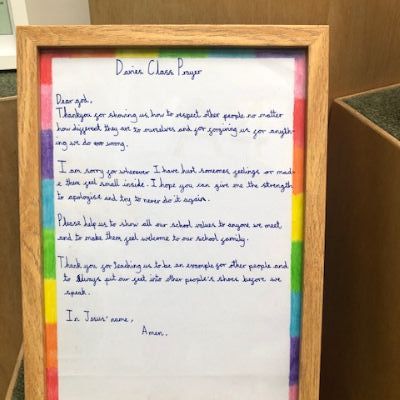 Davies Class Prayer
Dear god,
Thankyou for showing us how to respect other people no matter
how different they are to ourselves and for forgiving us for anyth-
ing we do wrong.
I am sorry for whenever I have hurt someones feelings or mad-
e them feel small inside. I hope you can give me the strength
to apologise and try to never do it again.
Please help us to show all our school values to anyone we meet
and to make them feel welcome to our school family.
Thank you for teaching us to be an example for other people and
to always put our feet into other people's shoes before we
speak.
In Jesus' name,
Amen.